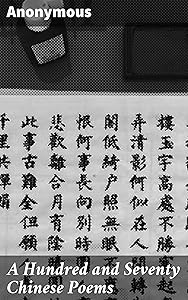 Anonymous
樓玉宇高處不勝寒
弄清影何似在人間轉
閣低綺戶照無眠不
恨何事長向別時
悲歡離合月有陰晴
此事古難全但願
千里共嬋
A Hundred and Seventy
Chinese Poems